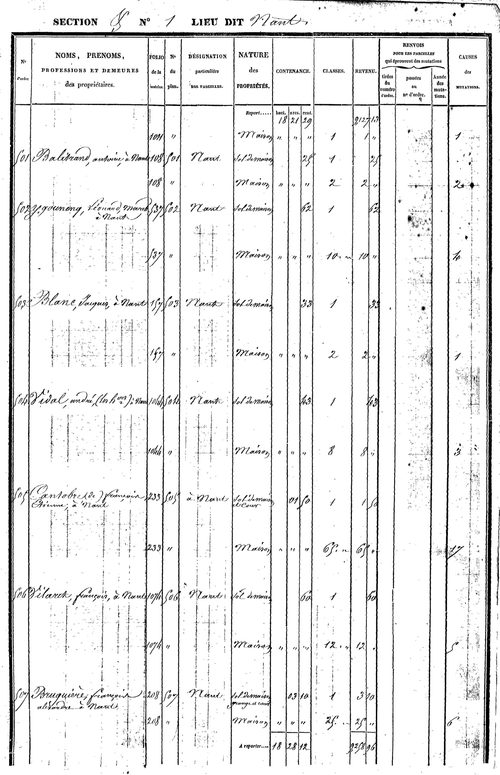 SECTION N° 1 LIEU DIT Nant.
N° d'ordre.
NOMS, PRENOMS,
PROFESSIONS ET DEMEURES
des propriétaires.
FOLIO de la
N° du plan.
DÉSIGNATION
particulière
DES PARCELLES.
NATURE
des
PROPRIÉTÉS.
CONTENANCE.
CLASSES.
REVENU.
RENVOIS
POUR LES PARCELLES
qui éprouvent des mutations
CAUSES
des
MUTATIONS.
Report..... 18 21 29 9127 13
" Maison " " " 1 1 " 1
501 antoine, à Nant 108 501 Nant Sol de maison 25 1 " 25
108 " Maison " " " 2 2 " 2
502 à Nant 537 502 Nant Sol de maison 62 1 62
537 " Maison " " " 10 " 10 " 4
503 Blanc, Jacques, à Nant 157 503 Nant Sol de maison 33 1 33
157 " Maison " " " 2 2 " 1
504 Vidal, andré à Nant 1044 504 Nant Sol de maison 43 1 43
1044 " Maison " " " 8 8 " 3
505 Cantobre (de) françois
Etienne, à Nant 233 505 à Nant Sol de maison et Cour 01 50 1 1 50
233 " Maison " " " 65 " 65 " 17
506 françois, à Nant 1074 506 Nant Sol de maison 60 1 60
1074 " Maison " " " 12 " 12 " 5
507 Bruguière, françois
alexandre à Nant 208 507 Nant Sol de maison grange et cour 03 10 1 3 10
208 " Maison " " " 25 " 25 " 6
A reporter.... 18 28 12 9258 96